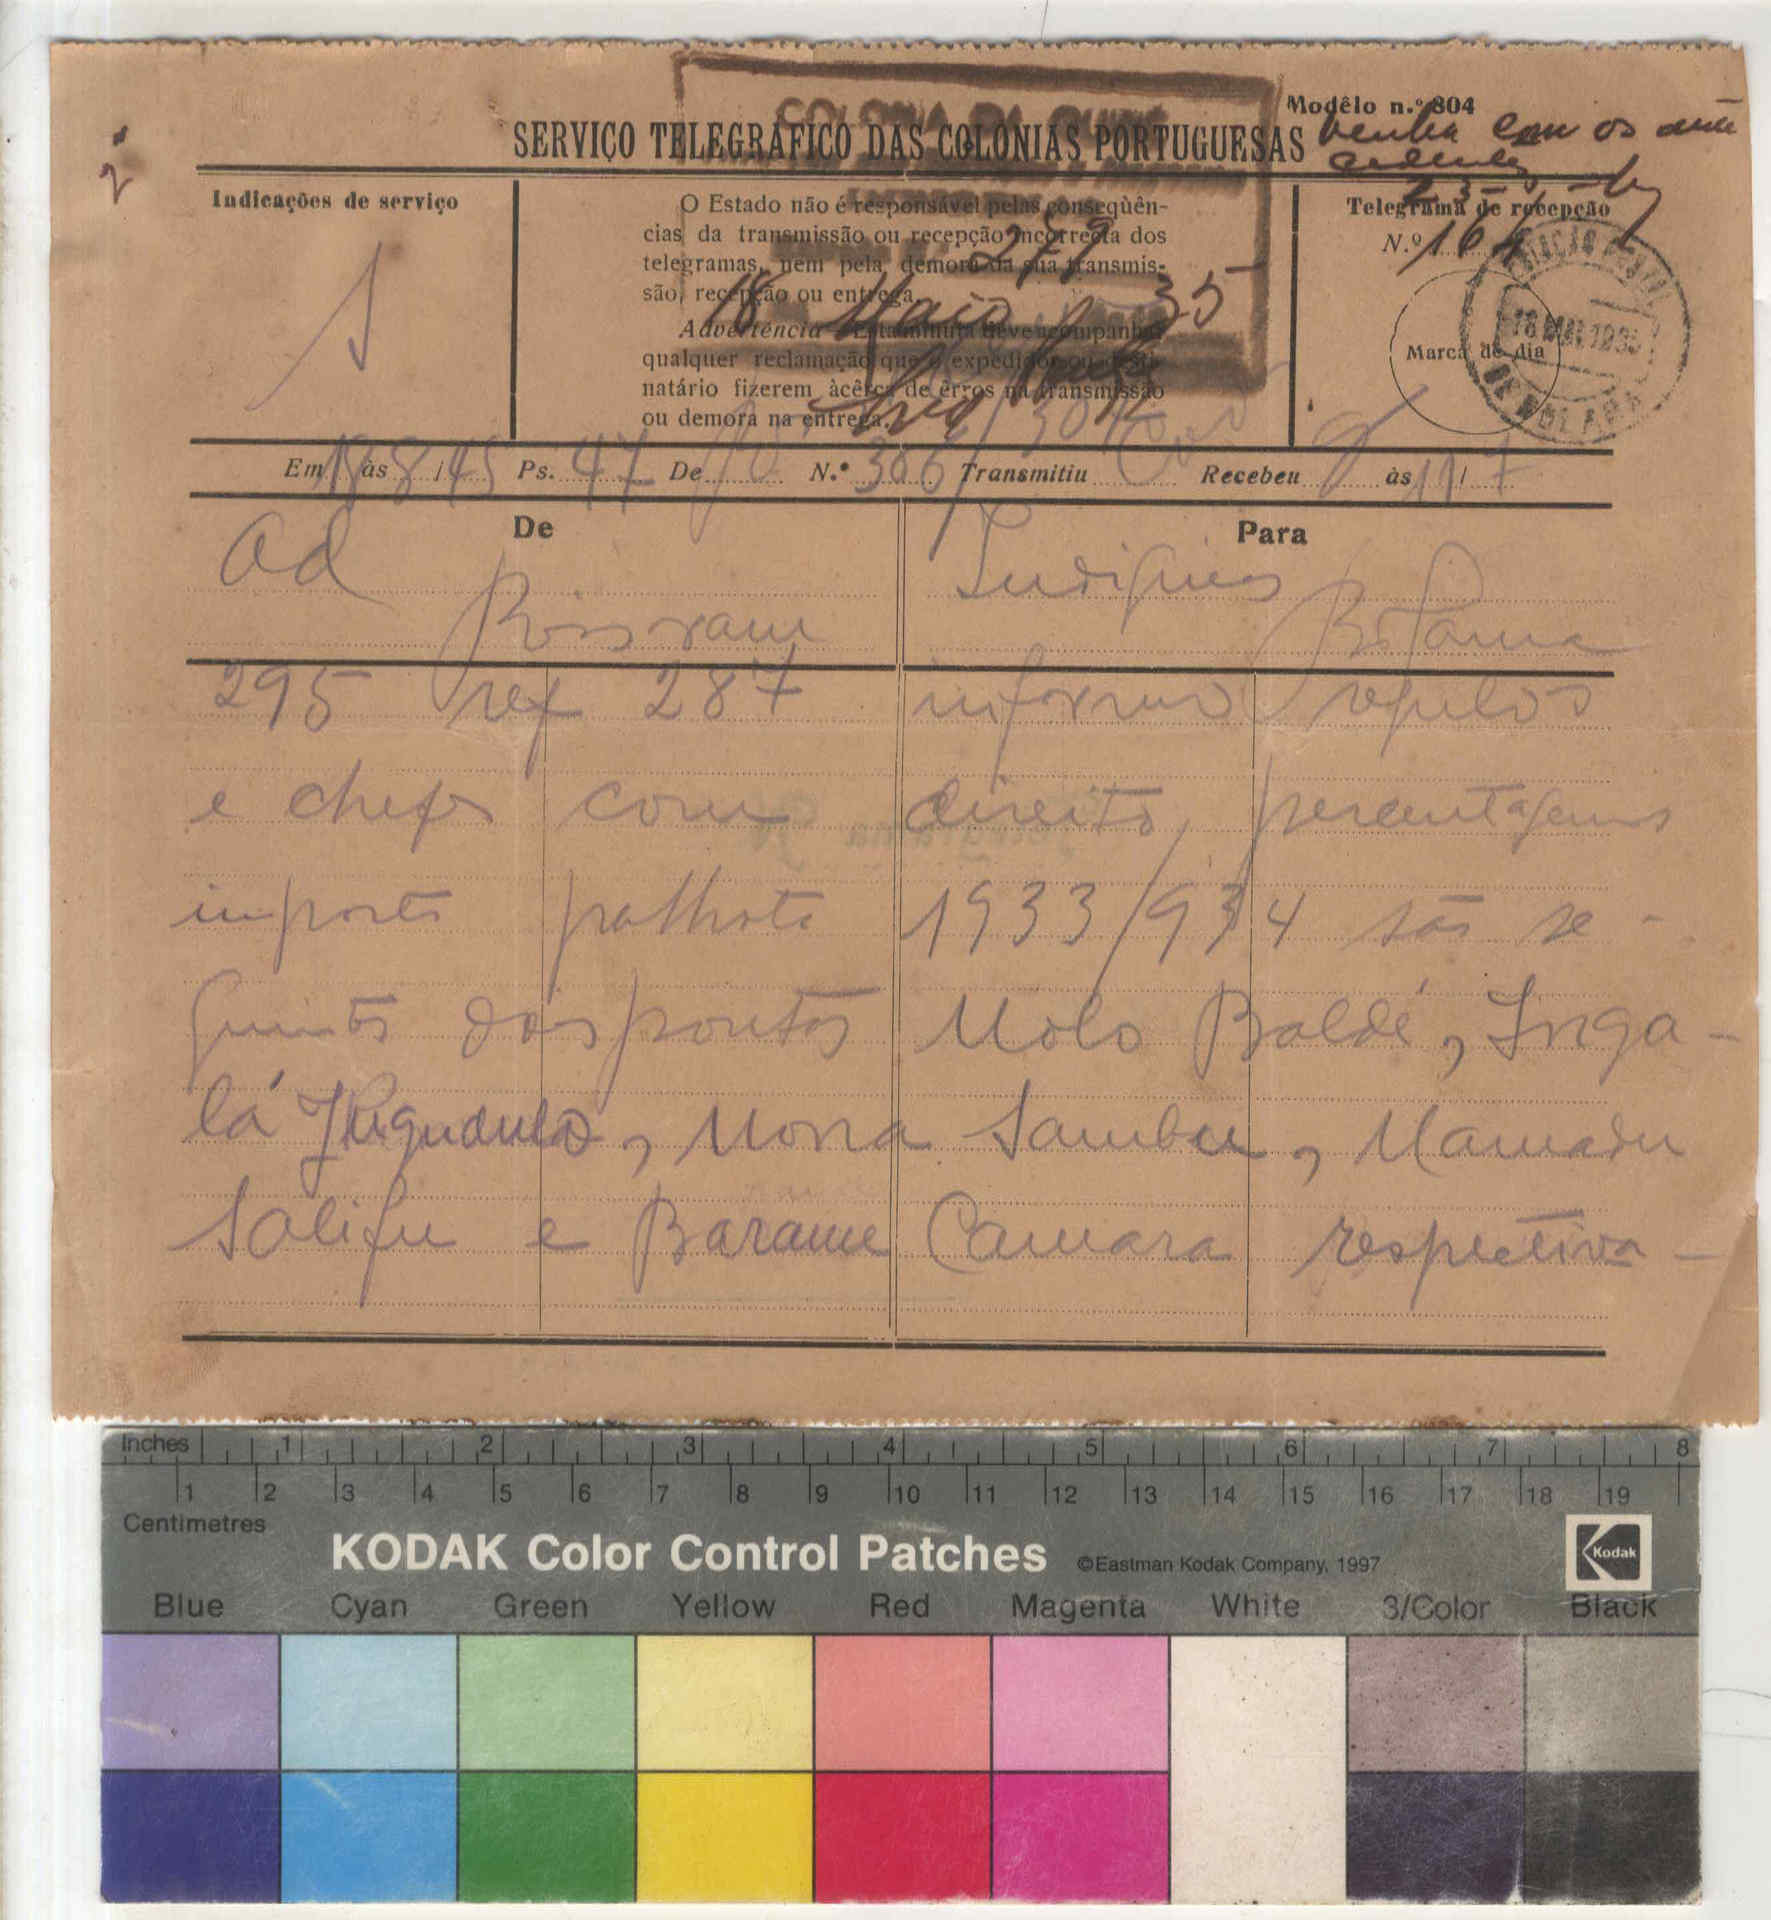 Modêlo n.º 804
COLONIA DA GUINÉ
SERVIÇO TELEGRÁFICO DAS COLONIAS PORTUGUESAS
venha com os ante
cedentes
23-5-
Indicações de serviço
O Estado não é responsável pelas conseqùên-
cias da transmissão ou recepção incorrecta dos
telegramas, nem pela demora da sua transmis-
são, recepção ou entrega.
Advertência — Esta minuta deve acompanhar
qualquer reclamação que o expedidor ou desti-
natário fizerem àcêrca de êrros na transmissão
ou demora na entrega.
279
18 Maio 35
Telegrama de recepção
N.º 164
Marca de dia
18 MAI 1935
DE BOLAMA
Em 18 às 8/45 Ps. 47 De N.º 306/30 Transmitiu Recebeu às 11/7
De
Ad
Bissoram
Para
Indigenas
Bolama
295 ref 287 informo regulos
e chefes com direito percentagens
imposto palhota 1933/934 são se-
guintes dois pontos Molo Baldé, Inga-
lá , Mona Sambu, Mamadu
Salifu e Barame Camara respectiva-
Inches 1 2 3 4 5 6 7 8
1 2 3 4 5 6 7 8 9 10 11 12 13 14 15 16 17 18 19
Centimetres
KODAK Color Control Patches ©Eastman Kodak Company, 1997 Kodak
Blue Cyan Green Yellow Red Magenta White 3/Color Black